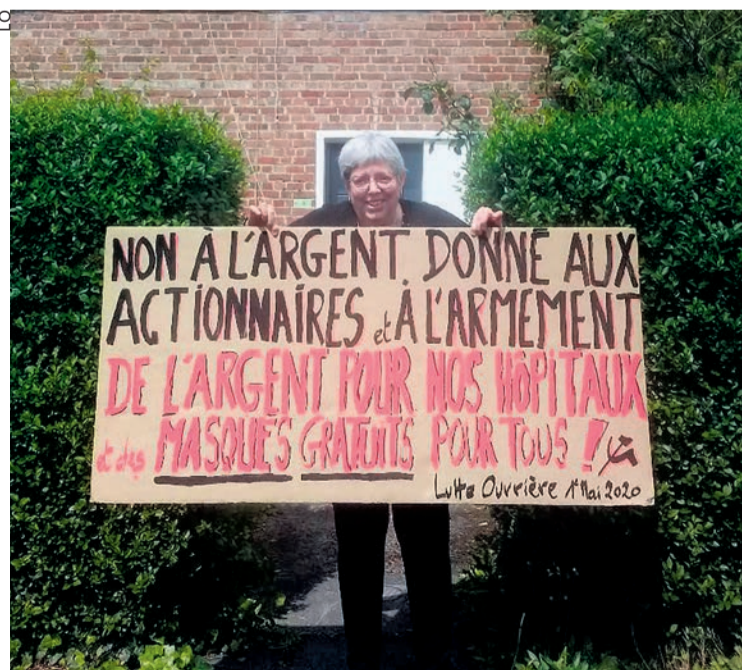 NON À L'ARGENT DONNÉ AUX
ACTIONNAIRES et À L'ARMEMENT
DE L'ARGENT POUR NOS HÔPITAUX
et des MASQUES GRATUITS POUR TOUS !
Lutte Ouvrière 1er Mai 2020